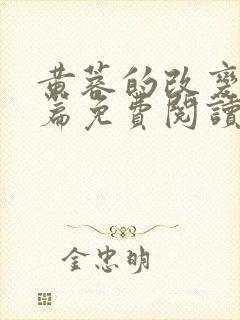 黄蓉的改变
篇免費閱讀
金忠明